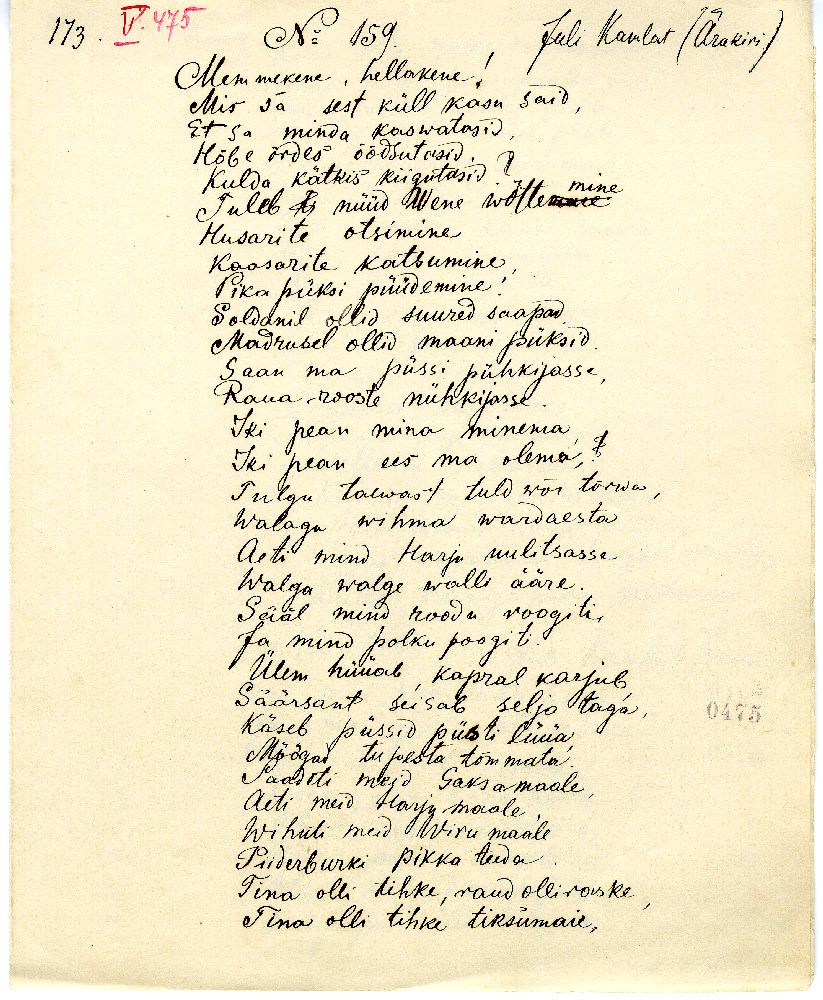 173. V. 475
№ 159. Juli Kanlat (Ärakiri)
Memmekene, hellakene!
Mis sa sest küll kasu said,
Et sa minda kaswatasid,
Hõbe õrdes õõdsutasid,
Kulda kätkis kiigutasid?
Tuleb nüüd Wene wõttemine
Husarite otsimine
Kaasarite katsumine,
Pika püksi püüdemine!
Soldanil ollid suured saapad
Madrusel ollid maani püksid.
Saan ma püssi pühkijasse,
Raua-rooste nühkijasse.
Iki pean mina minema,
Iki pean ees ma olema,
Tulgu taewast tuld wõi tõrwa,
Walagu wihma wardaesta
Aeti mind Harju uulitsasse
Walga walge walli ääre.
Sääl mind roodu roogiti,
Ja mind polku poogiti.
Ülem hüüab, kapral karjub,
Säärsant seisab selja taga,
Käseb püssid püsti lüüa,
Mõõgad tupesta tõmmata.
Saadeti meid Saksamaale,
Aeti meid Harju maale,
Wihuti meid Wiru maale
Piiderburki pikka teeda.
Tina olli tihke, raud olli raske,
Tina olli tihke tiksumaie,
0475